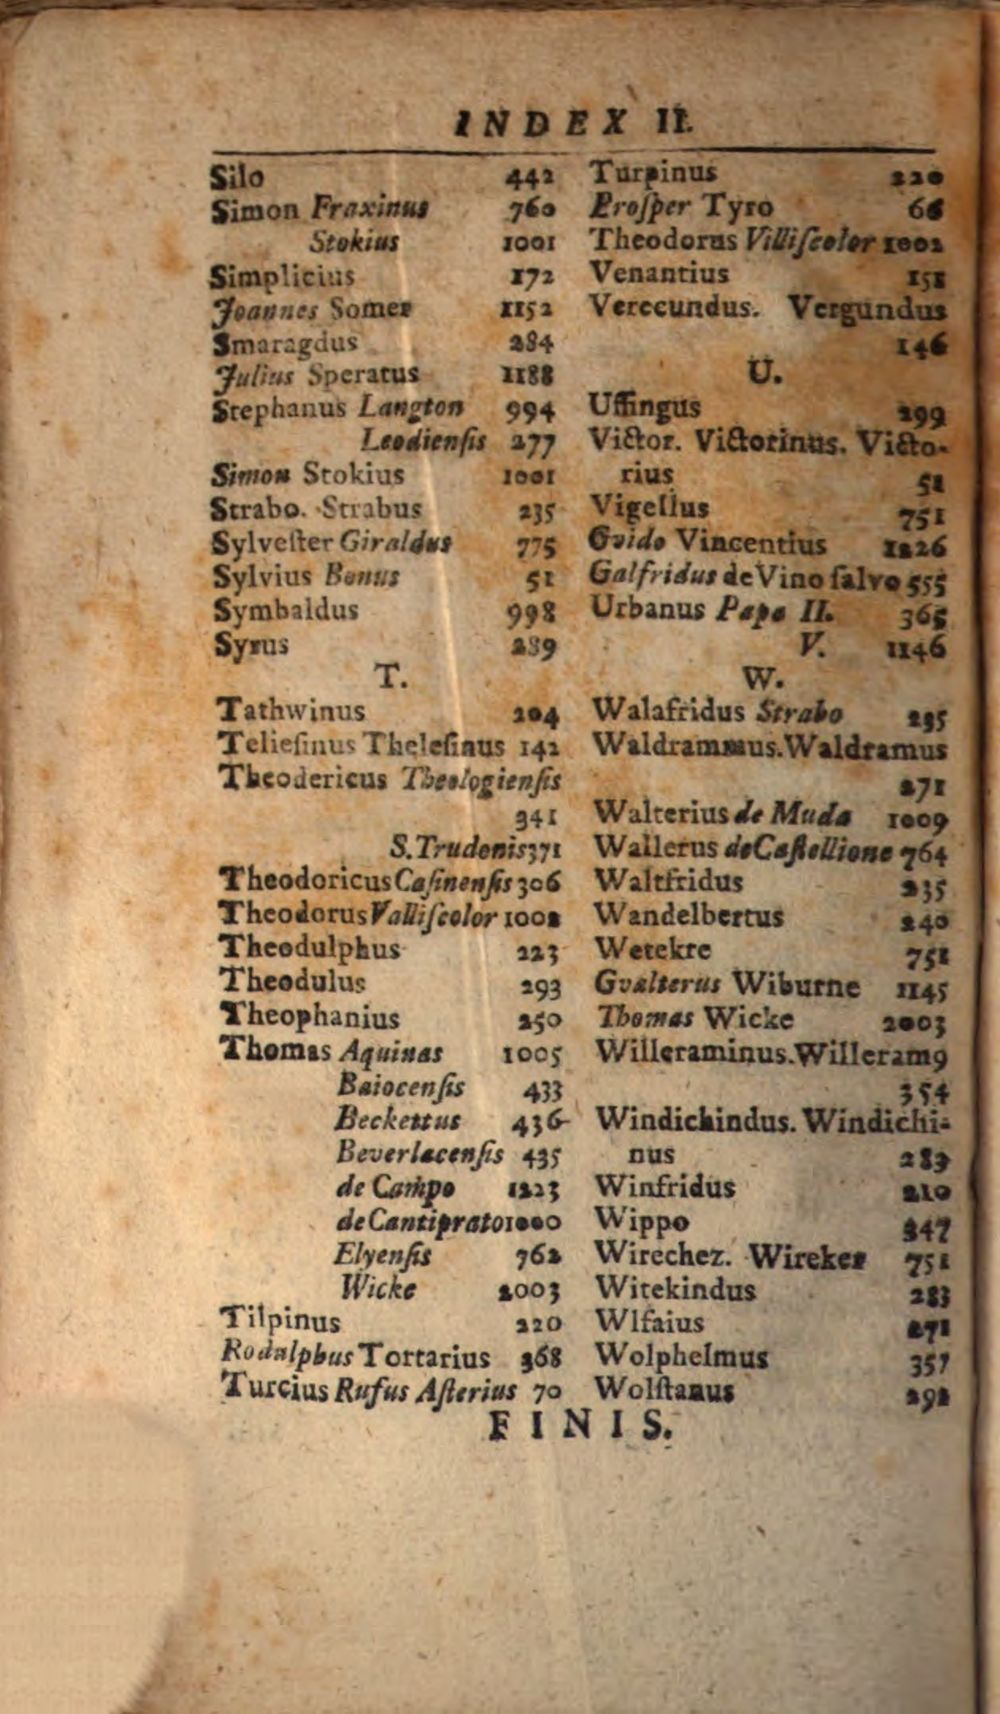 INDEX II.
Silo 442
Simon Fraxinus 760
Stokius 1001
Simplicius 172
Joannes Somer 1152
Smaragdus 284
Julius Speratus 1188
Stephanus Langton 994
Leodienſis 277
Simon Stokius 1001
Strabo. Strabus 235
Sylveſter Giraldus 775
Sylvius Bonus 51
Symbaldus 998
Syrus 289
T.
Tathwinus 204
Telieſinus Theleſinus 142
Theodericus Theologienſis
341
S. Trudonis 371
Theodoricus Caſinenſis 306
Theodorus Valliſcolor 1002
Theodulphus 223
Theodulus 293
Theophanius 250
Thomas Aquinas 1005
Baiocenſis 433
Beckettus 436
Beverlacenſis 435
de Campo 1223
de Cantiprato 1000
Elyenſis 762
Wicke 2003
Tilpinus 220
Rodulphus Tortarius 368
Turcius Rufus Aſterius 70
Turpinus 220
Proſper Tyro 66
Theodorus Villiſcolor 1002
Venantius 151
Verecundus. Vergundus
146
U.
Uffingus 299
Victor. Victorinus. Victo-
rius 51
Vigellus 751
Gvido Vincentius 1226
Galfridus de Vino ſalvo 555
Urbanus Papa II. 365
V. 1146
W.
Walafridus Strabo 235
Waldrammus. Waldramus
271
Walterius de Muda 1009
Wallerus de Caſtellione 764
Waltfridus 235
Wandelbertus 240
Wetekre 751
Gvalterus Wiburne 1145
Thomas Wicke 2003
Willeraminus. Willeram9
354
Windichindus. Windichi-
nus 283
Winfridus 210
Wippo 347
Wirechez. Wireker 751
Witekindus 283
Wlfaius 271
Wolphelmus 357
Wolſtanus 292
FINIS.